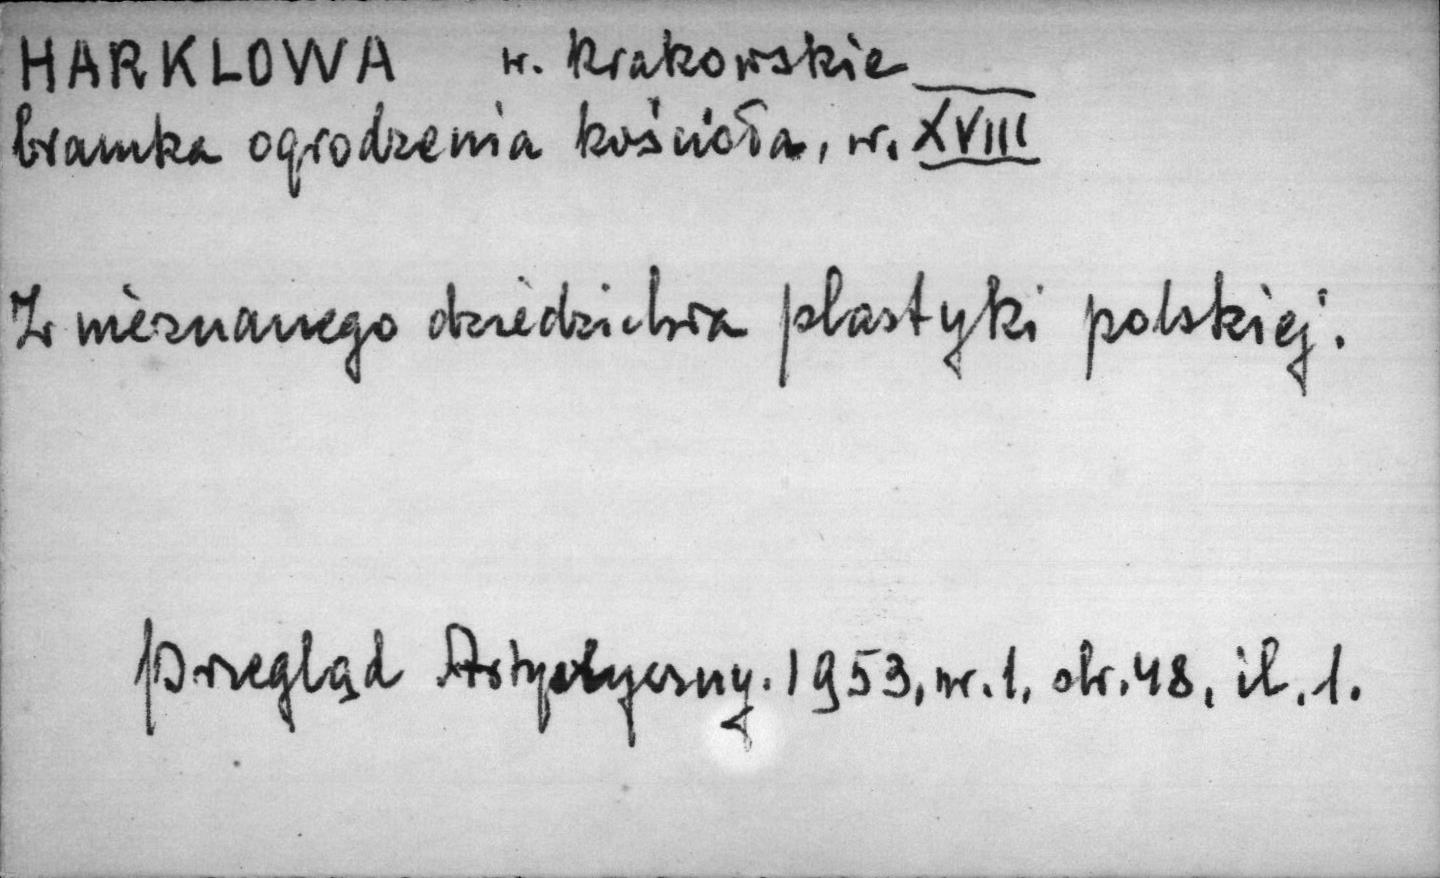 HARKLOWA w. krakowskie
bramka ogrodzenia kościoła, w. XVIII
Z nieznanego dziedzictwa plastyki polskiej.
Przegląd Artystyczny. 1953, nr. 1, str. 48, il. 1.